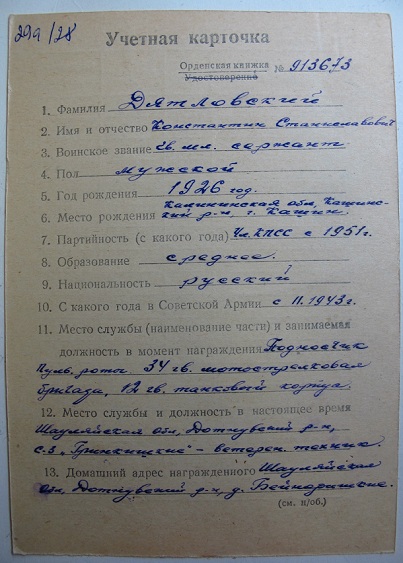 29а/28
Учетная карточка
Орденская книжка
Удостоверение № 913673
1. Фамилия Дятловский
2. Имя и отчество Константин Станиславович
3. Воинское звание гв. мл. сержант
4. Пол мужской
5. Год рождения 1926 год.
Калининская обл, Кашинс-
6. Место рождения кий р-н, г. Кашин.
7. Партийность (с какого года) Чл. КПСС с 1951 г.
8. Образование среднее.
9. Национальность русский
10. С какого года в Советской Армии с 11.1943 г.
11. Место службы (наименование части) и занимаемая
должность в момент награждения Подносчик
Пулем. роты 34 гв. мотострелковая
бригада, 12 гв. танковый корпус.
12. Место службы и должность в настоящее время
Шауляйская обл, Дотнувский р-н,
с-з „Гринкишкис" – ветерен. техник
13. Домашний адрес награжденного Шауляйская
обл, Дотнувский р-н, д.
(см. н/об.)